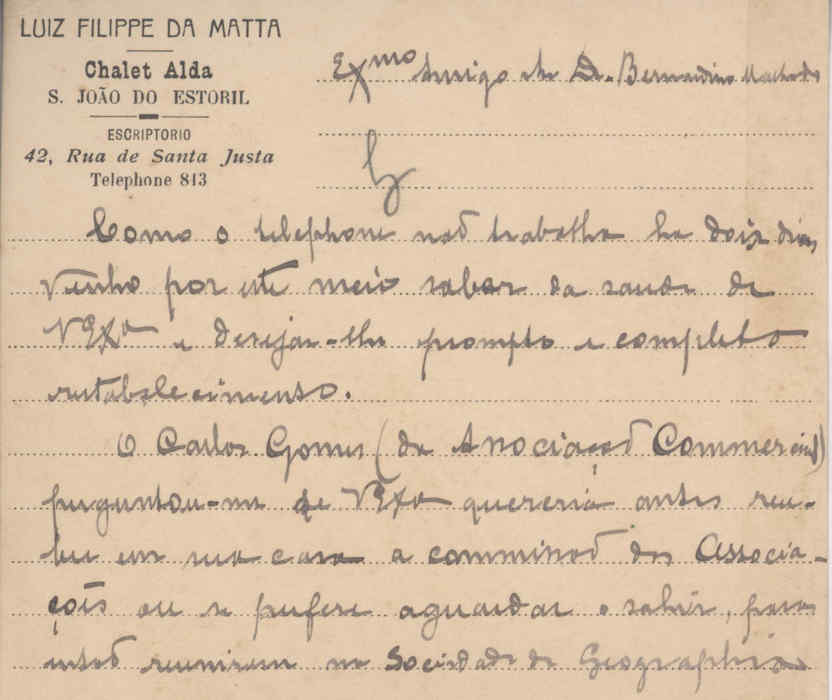 LUIZ FILIPPE DA MATTA
Chalet Alda
S. JOÃO DO ESTORIL
ESCRIPTORIO
42, Rua de Santa Justa
Telephone 813
Exmo Amigo e Sr Dr. Bernardino Machado
Como o telephone não trabalha ha dois dias,
venho por este meio saber da saude de
V Exa e desejar-lhe prompto e completo
restabelecimento.
O Carlos Gomes (da Associação Commercial)
perguntou-me se V Exa quereria antes rece-
ber em sua casa a commissão das Associa-
ções ou se prefere aguardar o sahir, para
então reunirem na Sociedade de Geographia